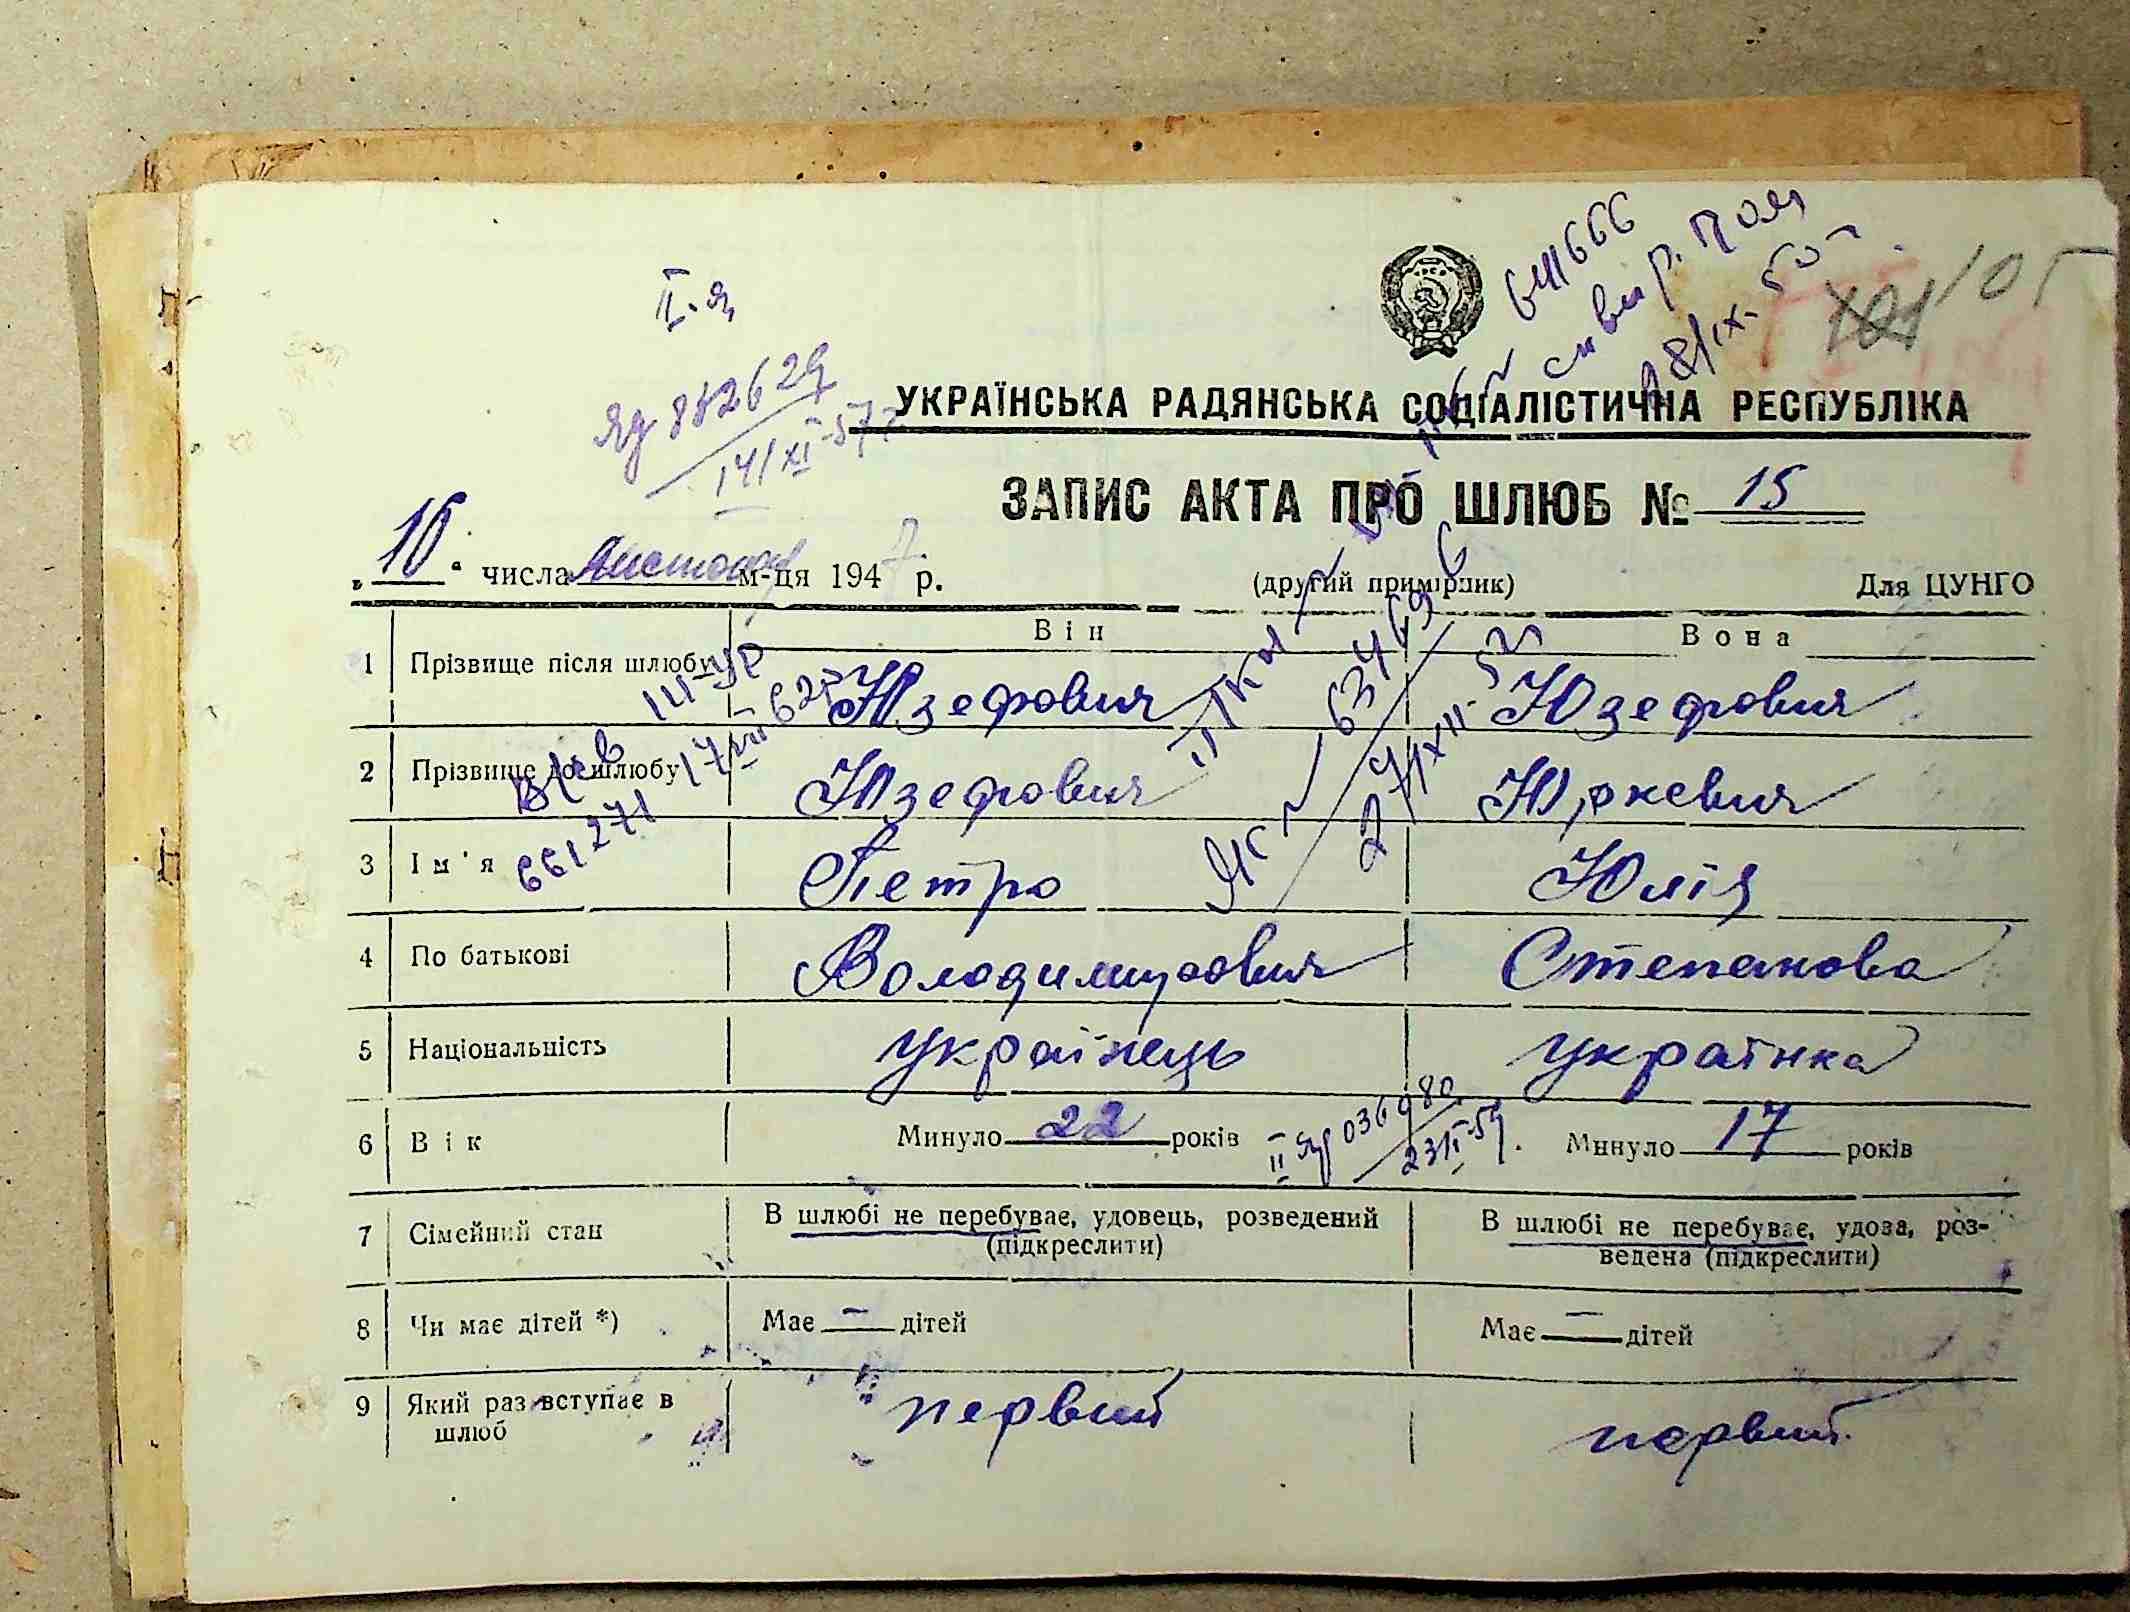 II-я
641666
105
101
УКРАЇНСЬКА РАДЯНСЬКА СОЦІАЛІСТИЧНА РЕСПУБЛІКА
14/XI-57
ЗАПИС АКТА ПРО ШЛЮБ № 15
„10“ числа Листопад м-ця 1947 р. (другий примірник) Для ЦУНГО
Він Вона
1 Прізвище після шлюбу Юзефович Юзефович
2 Прізвище до шлюбу Юзефович Юркевич
661271
634696
27/XII-52
3 Ім'я Петро Юлія
4 По батькові Володимирович Степанова
5 Національність українець українка
6 Вік Минуло 22 років Минуло 17 років
23/II-59.
7 Сімейний стан В шлюбі не перебуває, удовець, розведений (підкреслити) В шлюбі не перебуває, удова, розведена (підкреслити)
8 Чи має дітей *) Має — дітей Має — дітей
9 Який раз вступає в шлюб первий первий